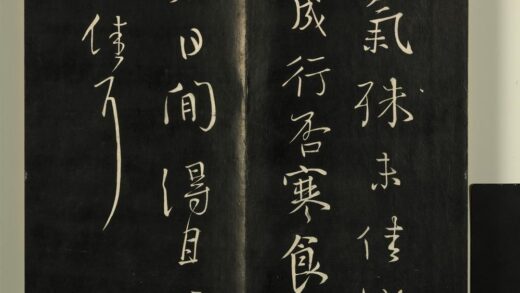 氣殊未佳
成行否寒食
日間得且
佳耳